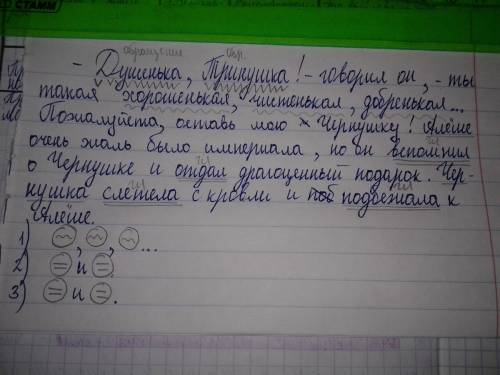 СТАММ
обращение обр.
- Душенька, Тринушка! - говорил он, - ты
такая хорошенькая, чистенькая, добренькая...
Пожалуйста, оставь мою Чернушку! Алёше
очень жаль было империала, но он вспомнил
о Чернушке и отдал драгоценный подарок. Чер-
нушка слетела с кровли и подбежала к
Алёше.
1) , , ...
2) и
3) и .